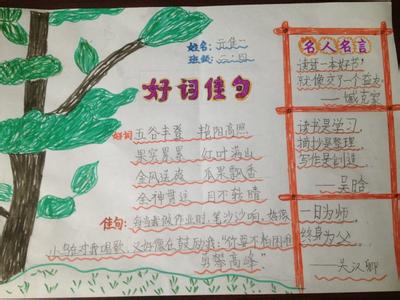 姓名:
班级:
好词佳句
好词 五谷丰登 艳阳高照
果实累累 红叶满山
金风送爽 瓜果飘香
全神贯注 目不转睛
佳句:每当我做作业时,笔沙沙响,好像
小鸟在对我唱歌,又好像在鼓励我:“你要不怕困难
勇攀高峰”
名人名言
读过一本好书,
就像交了一个益友
——臧克家
读书是学习,
摘抄是整理,
写作是创造。
——吴晗
一日为师
终身为父。
——关汉卿